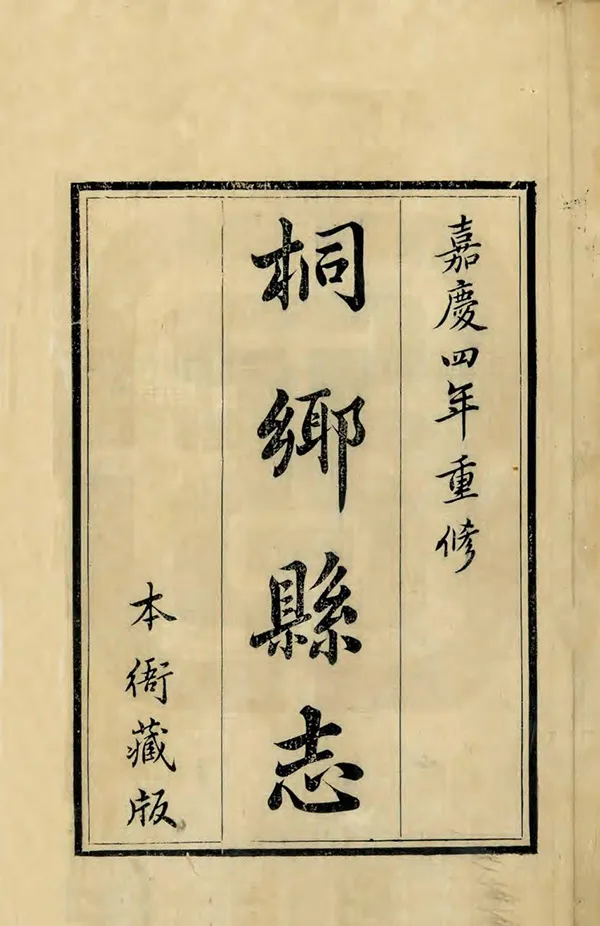 嘉慶四年重修
桐鄉縣志
本衙藏版